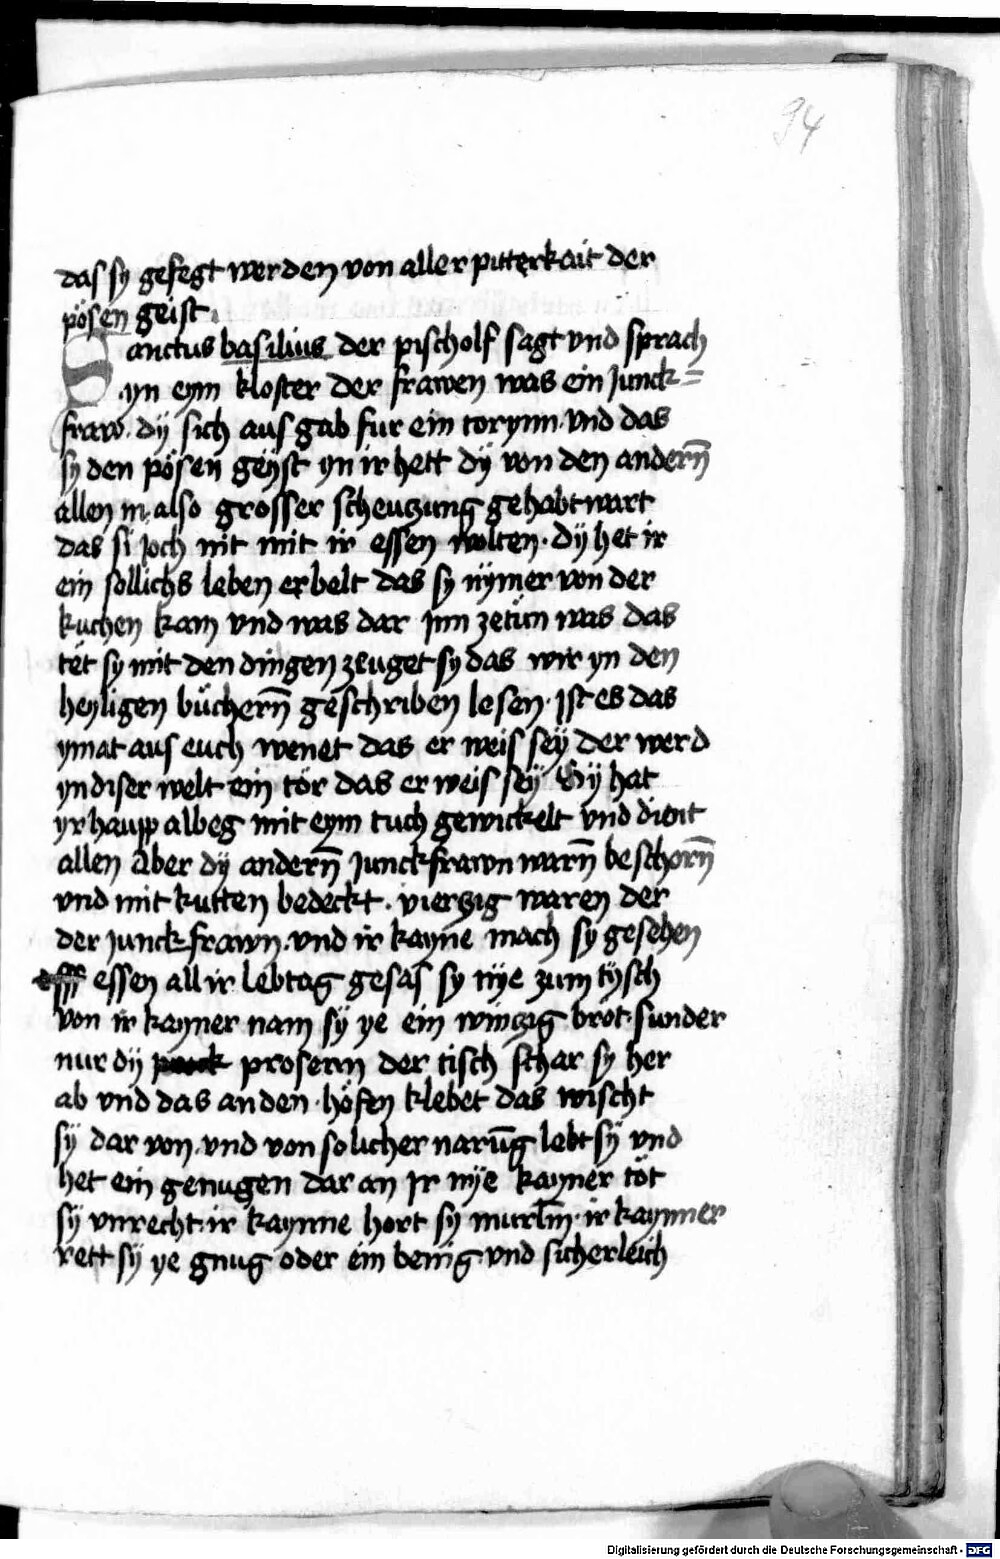 94
das sy gefegt werden von aller pitterkait der
pösen geist.
Sanctus basilius der pischolf sagt vnd sprach
.yn eym kloster der frawen was ein Junck=
fraw. dÿ sich aus gab fur ein torynn. vnd das
sy den pösen geÿst yn ir hett dÿ von den andern̄
allen in also grosser scheuczung gehabt wart
das si Joch nit mit ir essen wolten. dÿ het ir
ein sollichs leben erbelt das sy nÿmer von der
kuchen kam vnd was dar Jnn zetün was das
tet sy mit den dingen zeuget sy das wir yn den
heyligen büchern̄ geschriben lesen. Jst es das
ymat aus euch wenet das er weis seÿ der werd
yn diser welt ein tör das er weis seÿ Sÿ hat
yr haupp albeg mit eym tuch gewickelt vnd dient
allen Aber dÿ andern̄ Junckfrawn warn̄ beschorn̄
vnd mit kutten bedeckt. vierczig waren der
der Junckfrawn. vnd ir kayne mach sy gesehen
essen all ir lebtag gesas sy nÿe zum tÿsch
von ir kayner nam sÿ ye ein winczig brot. sunder
nur dÿ prosem der tisch schar sy her
ab vnd das an den höfen klebet das wischt
sÿ dar von. vnd von solicher narūg lebt sÿ vnd
het ein genugen dar an Jr nÿe kayner töt
sÿ vnrecht. ir kaynne hort sy murlm̄. ir kaynner
rett sÿ ye gnug oder ein benig. vnd sicherleich
Digitalisierung gefördert durch die Deutsche Forschungsgemeinschaft - DFG